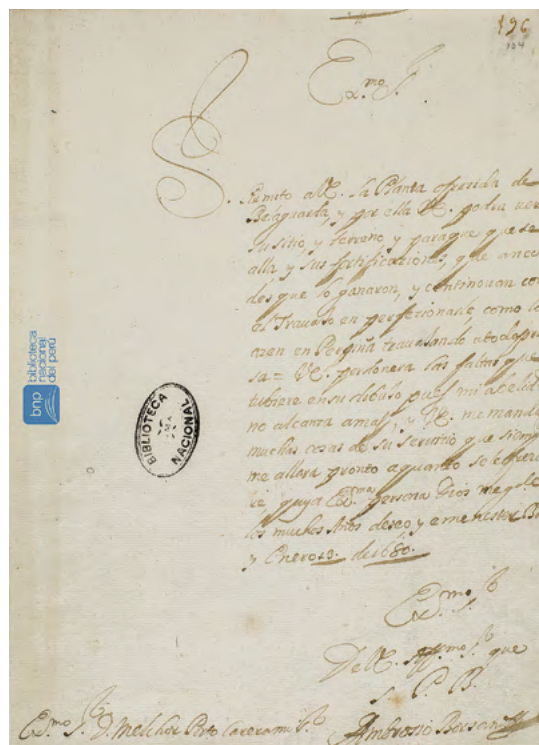 196
124
Ex.mo S.r
Remito a VE. la Planta ofresida de
Belaguarda, y por ella VE. podra ver
su sitio, y terreno y paraque que se
alla y sus fortificaciones, que an ec
des que lo ganaron, y continouan co
el Travaxo en perfezionarle, como lo
azen en travalando a toda pri
sa = VE. perdonera las faltas que
tubiere en su dibuso pues mi abelid
no alcanza a mas, y VE. me manda
muchas cosas de su servitio que siem
me allara pronto a quanto se
re guya Ex.ma persona Dios me g.de
los muchos Años deseo y e menester B
y Enero de 1680.
Ex.mo S.r
De VE. Aff.mo S. que
S. P. B.
Ex.mo S.r D. Melchor Porto Carera mi S.r
Ambrosio Borsano
BIBLIOTECA NACIONAL
bnp
biblioteca
nacional
del perú